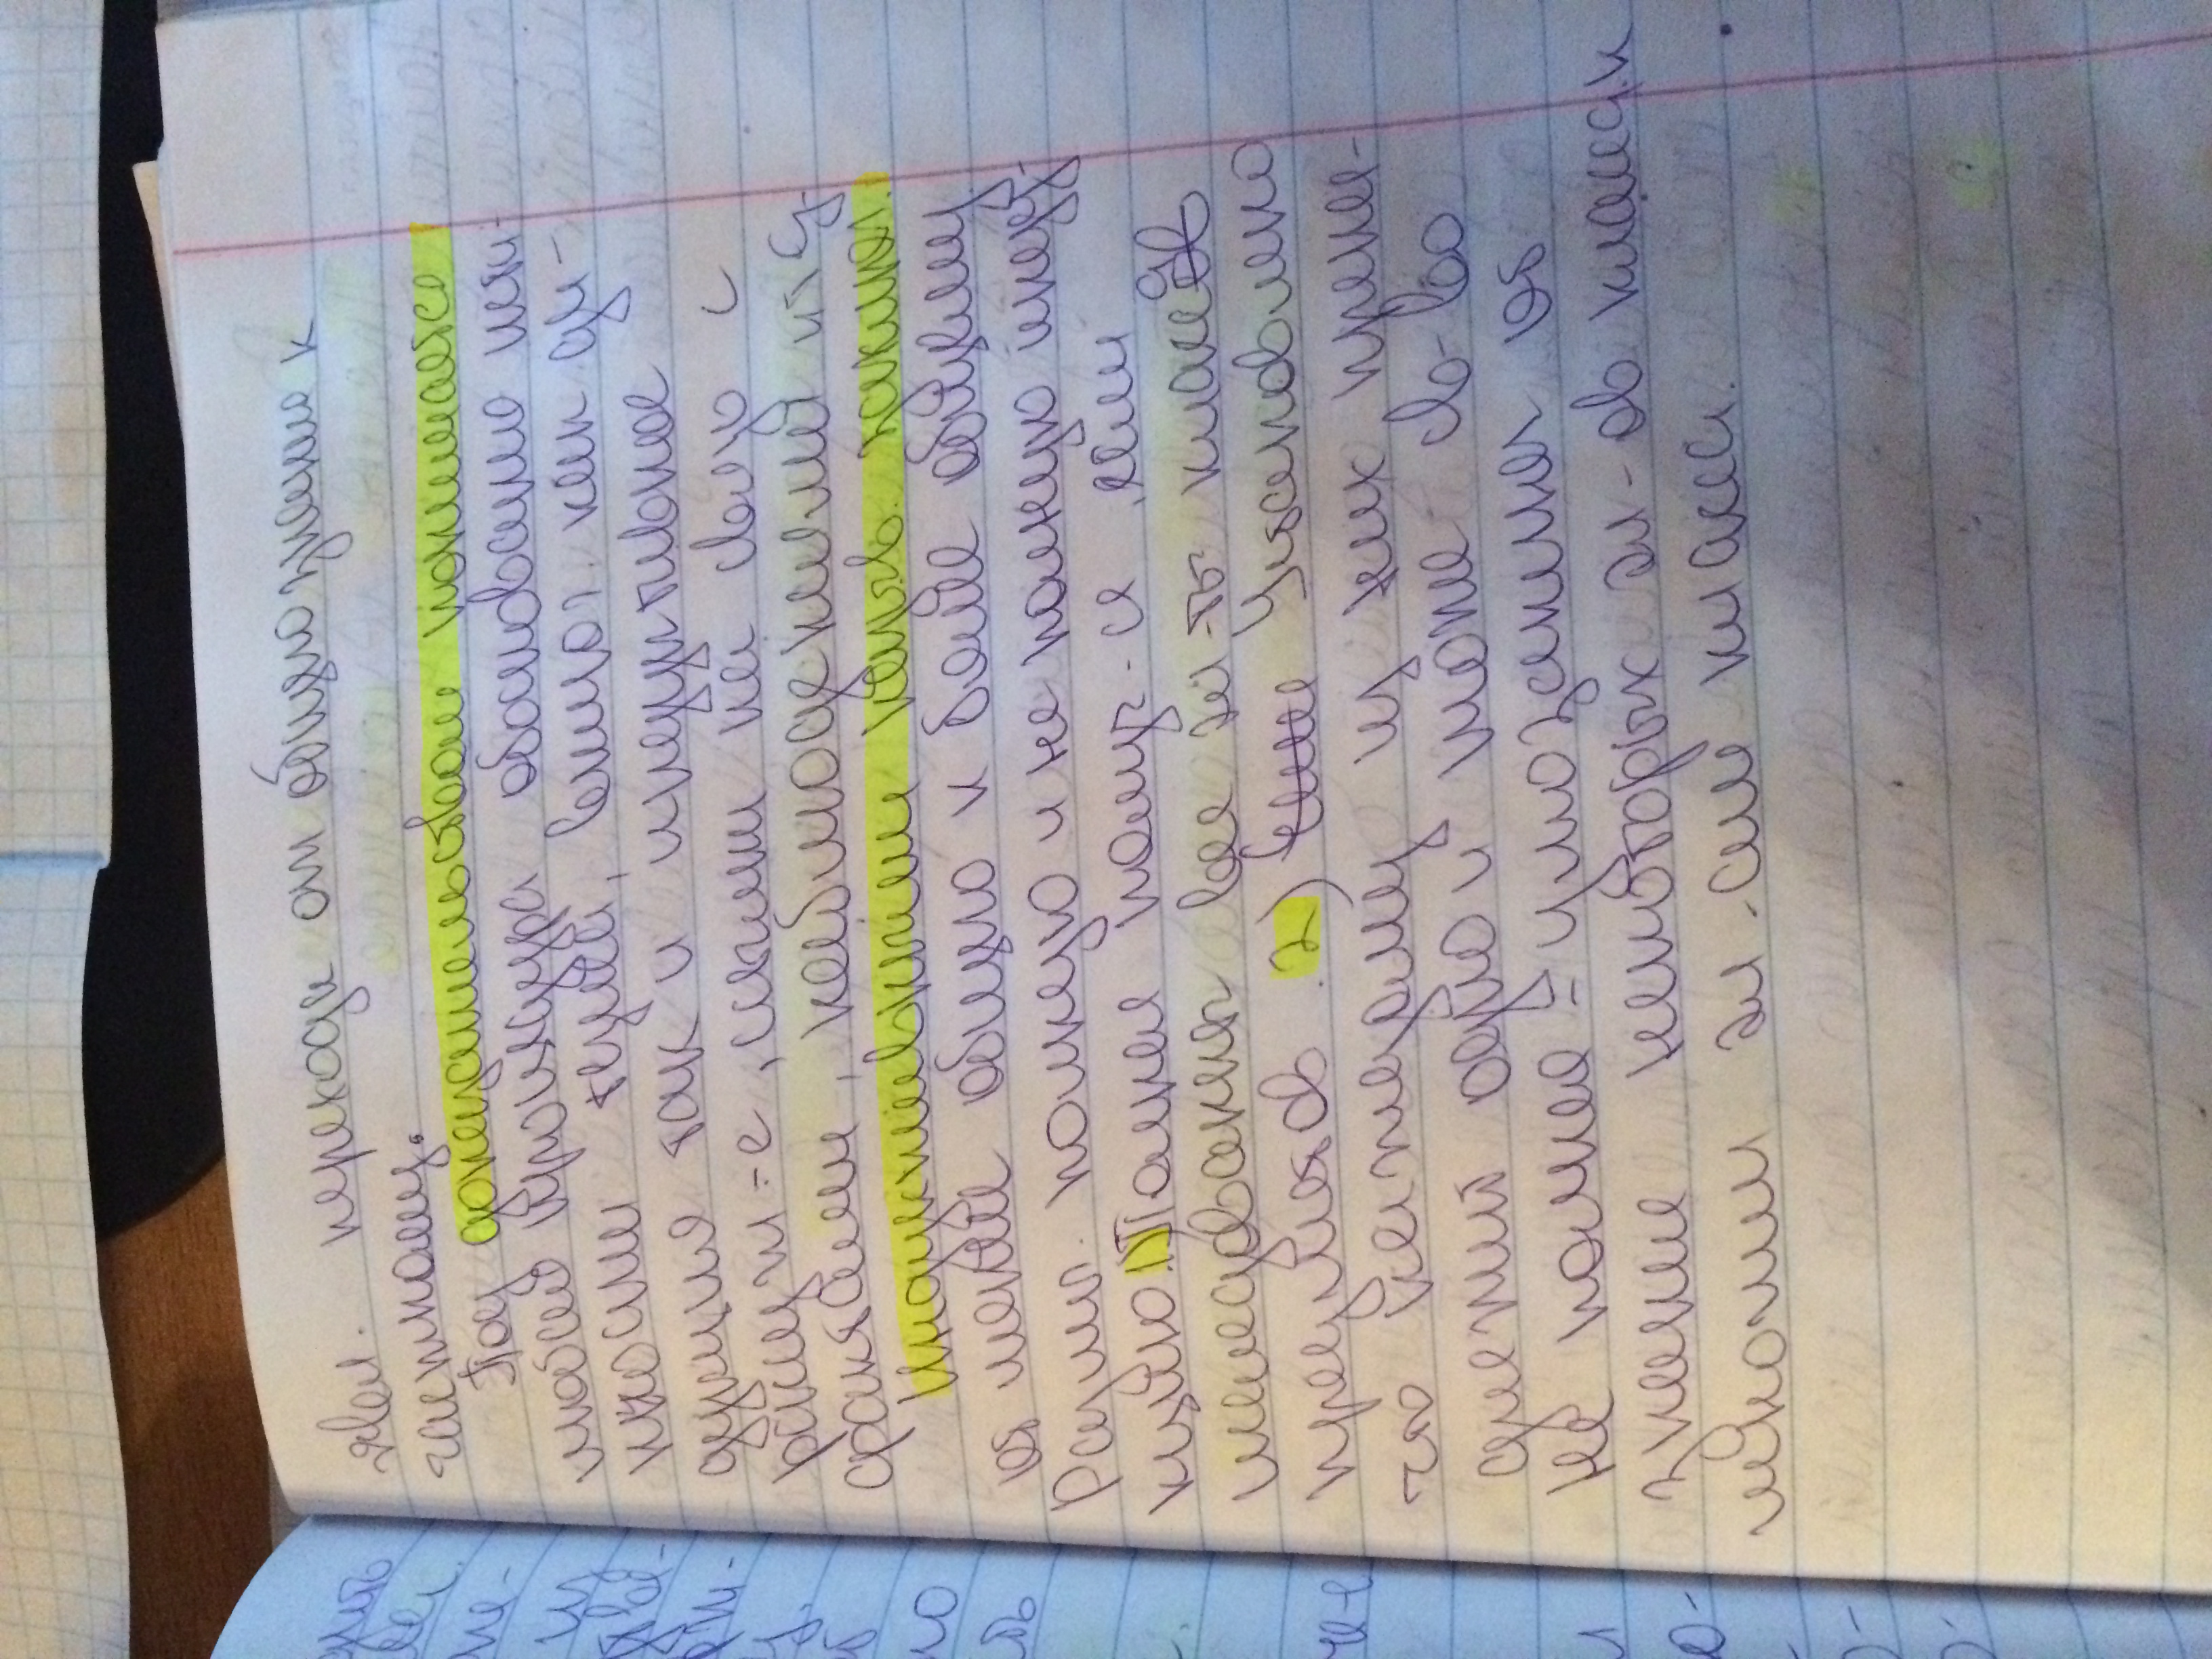 явл. перехода от общего знания к
частному.
Под доказательством понимается
любая процедура обоснования исти-
нности тезиса, включ. как де-
дукция так и индуктивное
рассужд-е, ссылки на связь с
фактами, наблюдениями и т д.
Индуктивными назыв. заключ.
от менее общего к более общему.
Различ. полную и не полную инду-
кцию. 1) Полная получ-ся, если
исследованны все эл-ты класса
предметов. 2) Установлено
что каждому из них прена-
длежит одно и тоже св-во
Не полная - умозаключ от
знание некоторых эл-ов класса к
эл- класса.